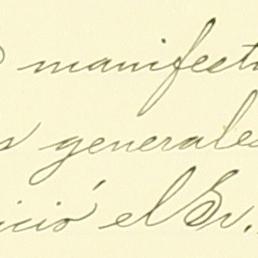 manifest
s generales
ició el Sr.